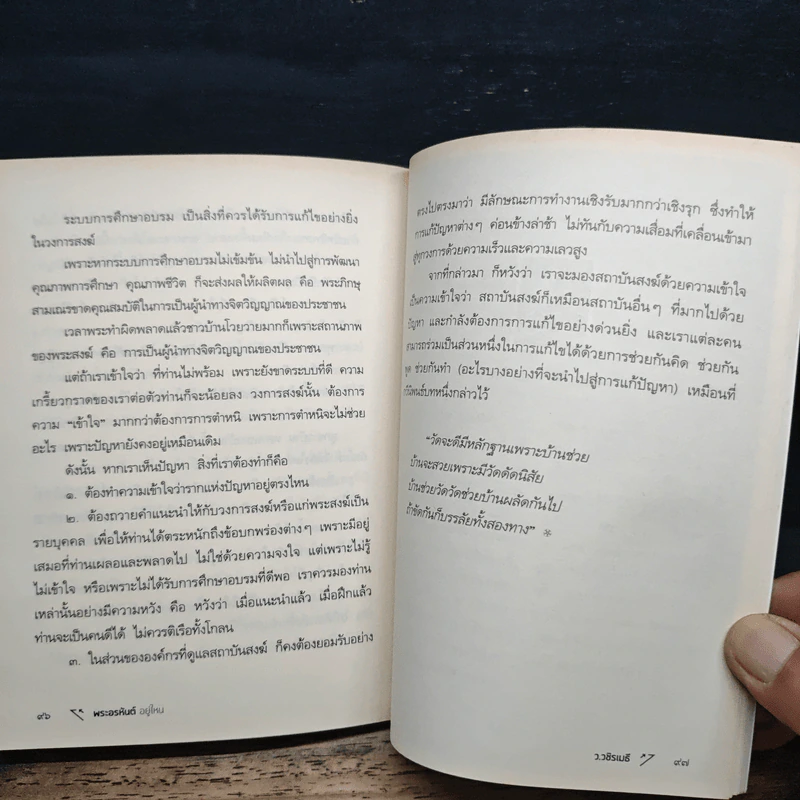 ระบบการศึกษาอบรม เป็นสิ่งที่ควรได้รับการแก้ไขอย่างยิ่ง
ในวงการสงฆ์
เพราะหากระบบการศึกษาอบรมไม่เข้มข้น ไม่นำไปสู่การพัฒนา
คุณภาพการศึกษา คุณภาพชีวิต ก็จะส่งผลให้ผลิตผล คือ พระภิกษุ
สามเณรขาดคุณสมบัติในการเป็นผู้นำทางจิตวิญญาณของประชาชน
เวลาพระทำผิดพลาดแล้วชาวบ้านโวยวายมากก็เพราะสถานภาพ
ของพระสงฆ์ คือ การเป็นผู้นำทางจิตวิญญาณของประชาชน
แต่ถ้าเราเข้าใจว่า ที่ท่านไม่พร้อม เพราะยังขาดระบบที่ดี ความ
เกรี้ยวกราดของเราต่อตัวท่านก็จะน้อยลง วงการสงฆ์นั้น ต้องการ
ความ “เข้าใจ” มากกว่าต้องการการตำหนิ เพราะการตำหนิจะไม่ช่วย
อะไร เพราะปัญหายังคงอยู่เหมือนเดิม
ดังนั้น หากเราเห็นปัญหา สิ่งที่เราต้องทำก็คือ
๑. ต้องทำความเข้าใจว่ารากแห่งปัญหาอยู่ตรงไหน
๒. ต้องถวายคำแนะนำให้กับวงการสงฆ์หรือแก่พระสงฆ์เป็น
รายบุคคล เพื่อให้ท่านได้ตระหนักถึงข้อบกพร่องต่างๆ เพราะมีอยู่
เสมอที่ท่านเผลอและพลาดไป ไม่ใช่ด้วยความจงใจ แต่เพราะไม่รู้
ไม่เข้าใจ หรือเพราะไม่ได้รับการศึกษาอบรมที่ดีพอ เราควรมองท่าน
เหล่านั้นอย่างมีความหวัง คือ หวังว่า เมื่อแนะนำแล้ว เมื่อฝึกแล้ว
ท่านจะเป็นคนดีได้ ไม่ควรติเรือทั้งโกลน
๓. ในส่วนขององค์กรที่ดูแลสถาบันสงฆ์ ก็คงต้องยอมรับอย่าง
๙๖ พระอรหันต์ อยู่ไหน
ตรงไปตรงมาว่า มีลักษณะการทำงานเชิงรับมากกว่าเชิงรุก ซึ่งทำให้
การแก้ปัญหาต่างๆ ค่อนข้างล่าช้า ไม่ทันกับความเสื่อมที่เคลื่อนเข้ามา
สู่ทุกวงการด้วยความเร็วและความเลวสูง
จากที่กล่าวมา ก็หวังว่า เราจะมองสถาบันสงฆ์ด้วยความเข้าใจ
เป็นความเข้าใจว่า สถาบันสงฆ์ก็เหมือนสถาบันอื่นๆ ที่มากไปด้วย
ปัญหา และกำลังต้องการการแก้ไขอย่างด่วนยิ่ง และเราแต่ละคน
สามารถร่วมเป็นส่วนหนึ่งในการแก้ไขได้ด้วยการช่วยกันคิด ช่วยกัน
พูด ช่วยกันทำ (อะไรบางอย่างที่จะนำไปสู่การแก้ปัญหา) เหมือนที่
กวีนิพนธ์บทหนึ่งกล่าวไว้
“วัดจะดีมีหลักฐานเพราะบ้านช่วย
บ้านจะสวยเพราะมีวัดดัดนิสัย
บ้านช่วยวัดวัดช่วยบ้านผลัดกันไป
ถ้าขัดกันก็บรรลัยทั้งสองทาง” *
ว.วชิรเมธี ๙๗